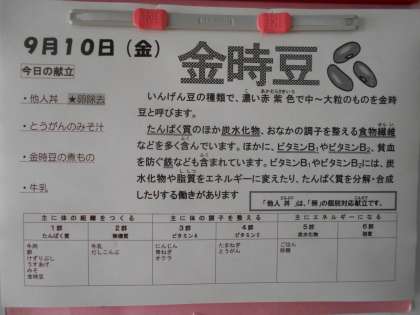 9月10日(金)
金時豆
今日の献立
・他人丼 ★卵除去
・とうがんのみそ汁
・金時豆の煮もの
・牛乳
いんげん豆の種類で、濃い赤紫色で中～大粒のものを金時豆
と呼びます。
たんぱく質のほか炭水化物、おなかの調子を整える食物繊維
などを多く含んでいます。ほかに、ビタミンB₁やビタミンB₂、貧血
を防ぐ鉄なども含まれています。ビタミンB₁やビタミンB₂には、炭
水化物や脂質をエネルギーに変えたり、たんぱく質を分解・合成
したりする働きがあります
「他人丼」は、「卵」の個別対応献立です。
主に体の組織をつくる 主に体の調子を整える 主にエネルギーになる
1群 2群 3群 4群 5群 6群
たんぱく質 無機質 ビタミンA ビタミンC 炭水化物 脂質
牛肉 牛乳 にんじん たまねぎ ごはん
卵 だしこんぶ 青ねぎ とうがん 砂糖
けずりぶし オクラ
うすあげ
みそ
金時豆